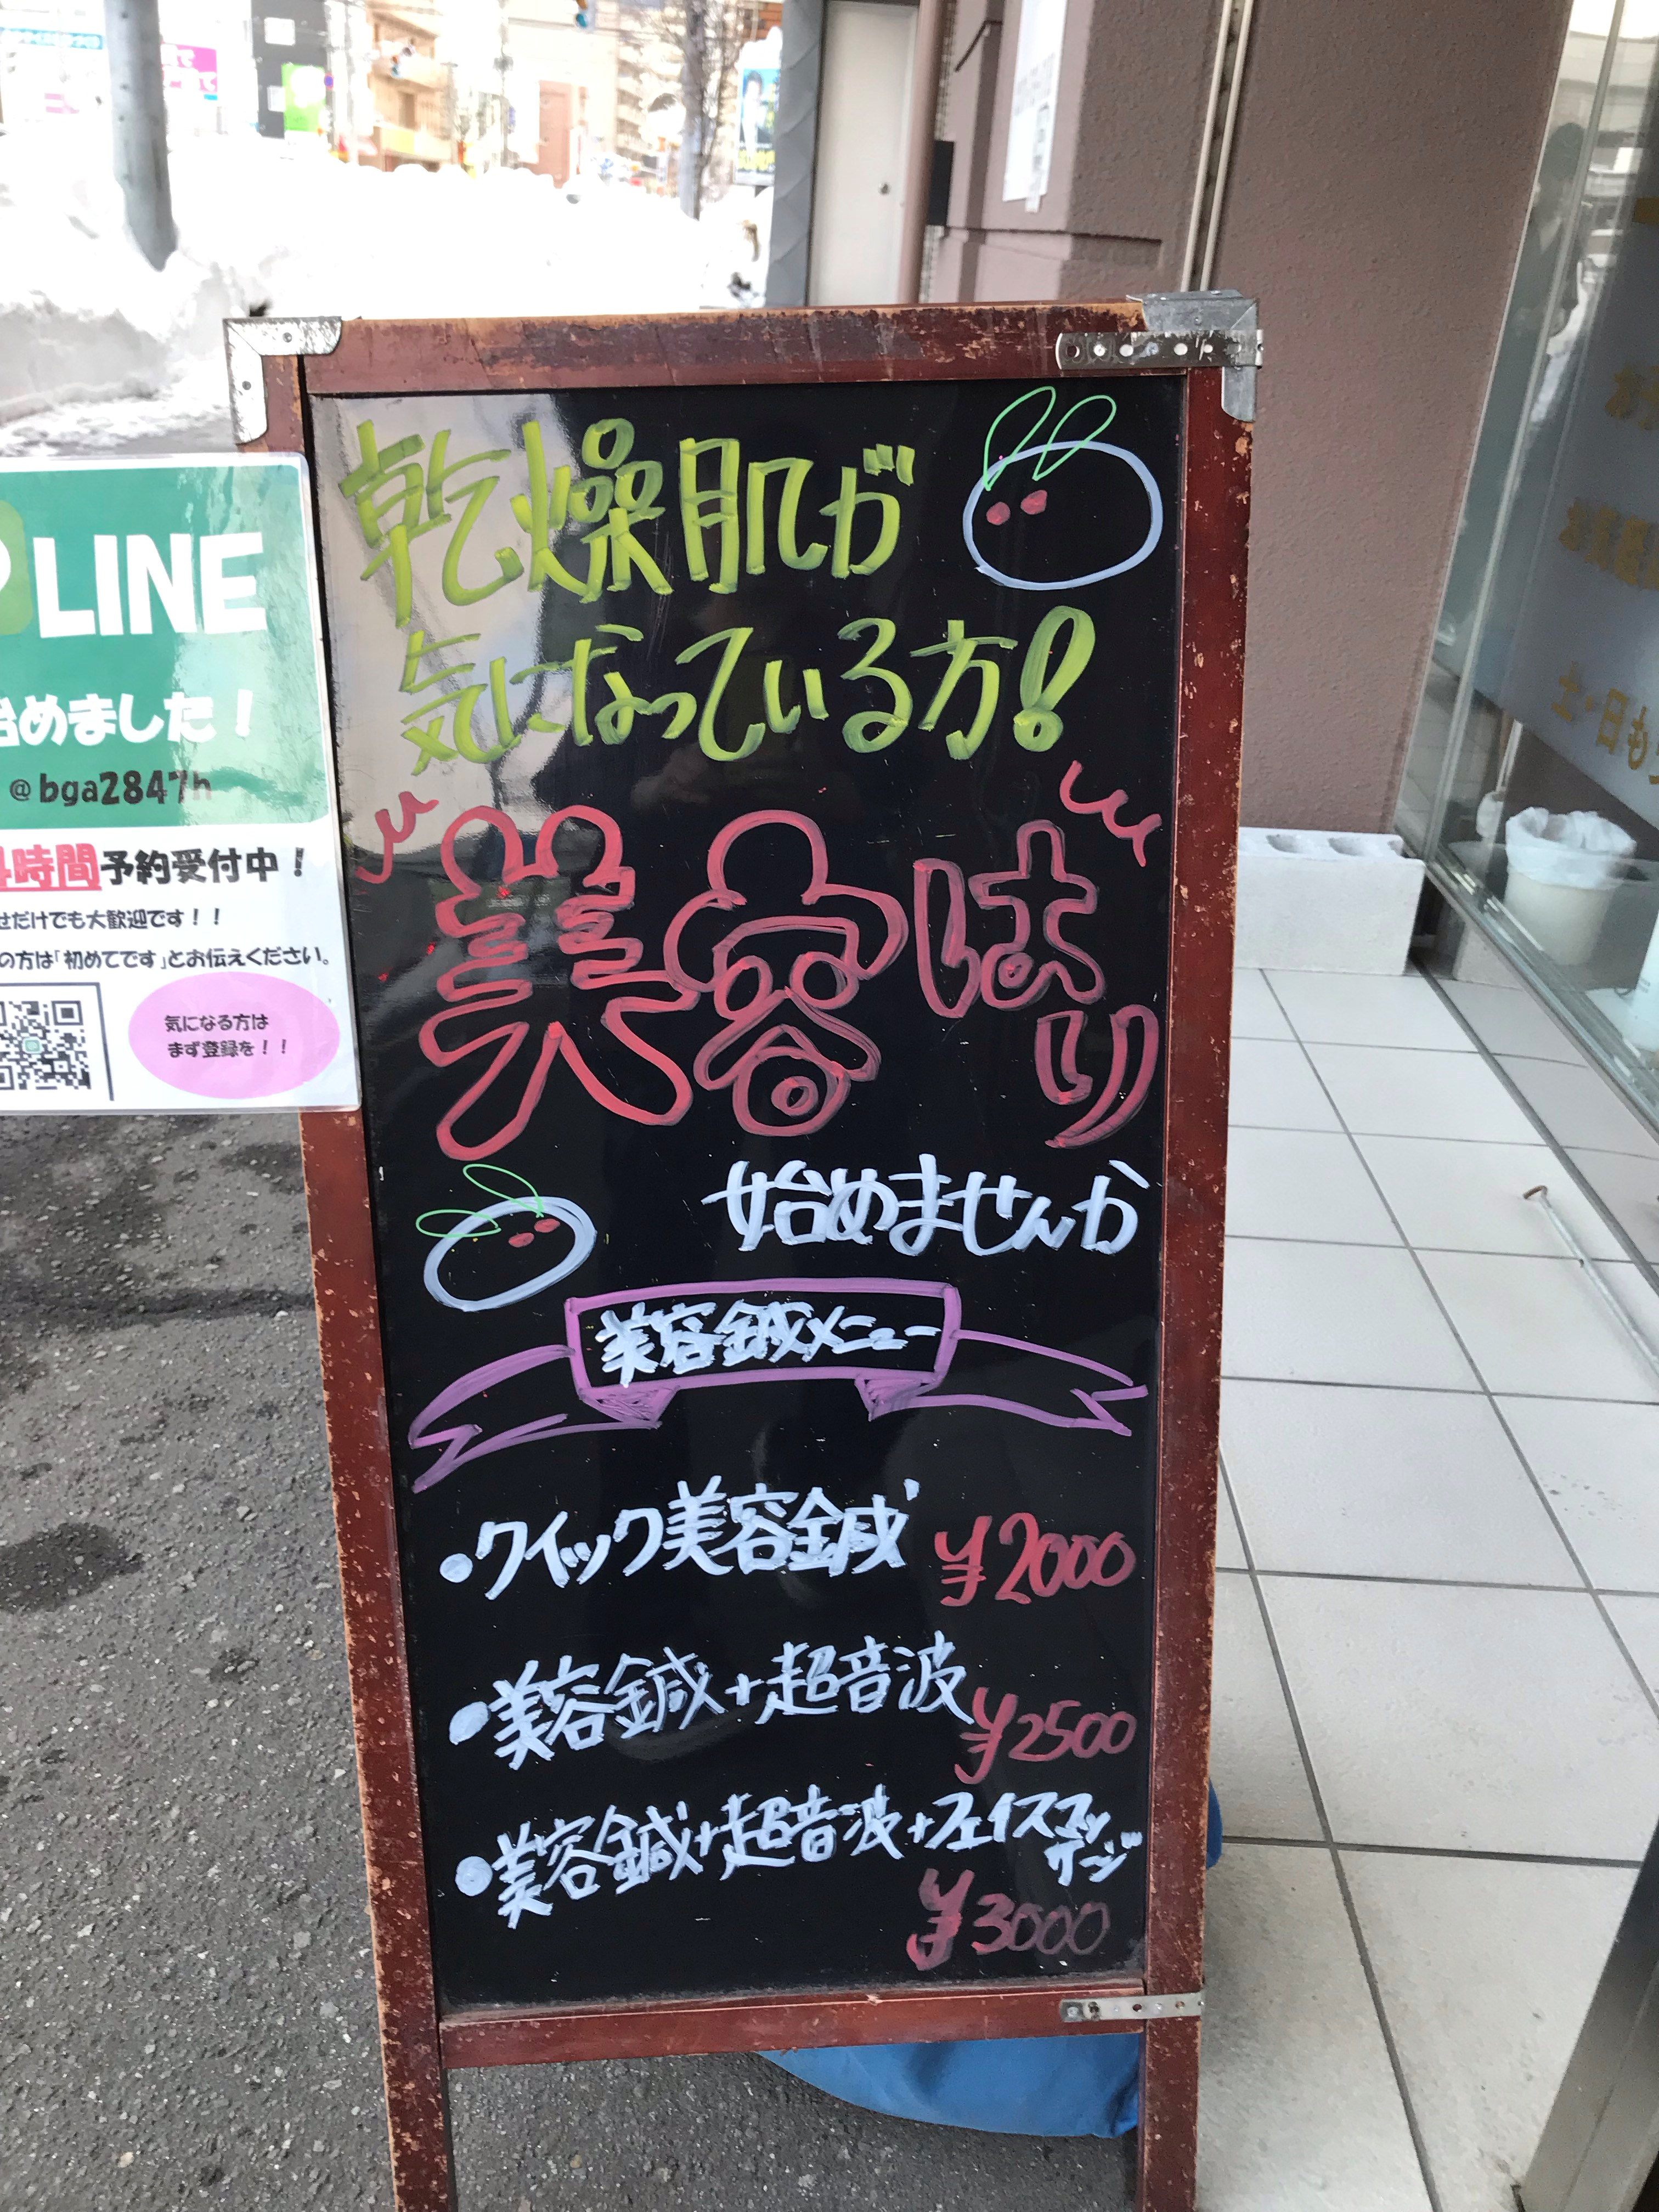 乾燥肌が
気になっている方!
美容はり
始めませんか
美容鍼メニュー
・クイック美容鍼 ¥2000
・美容鍼+超音波
¥2500
・美容鍼+超音波+フェイスマッ
サージ
¥3000
LINE
始めました!
@bga2847h
4時間予約受付中!
せだけでも大歓迎です!!
の方は「初めてです」とお伝えください。
気になる方は
まず登録を!!
土・日も